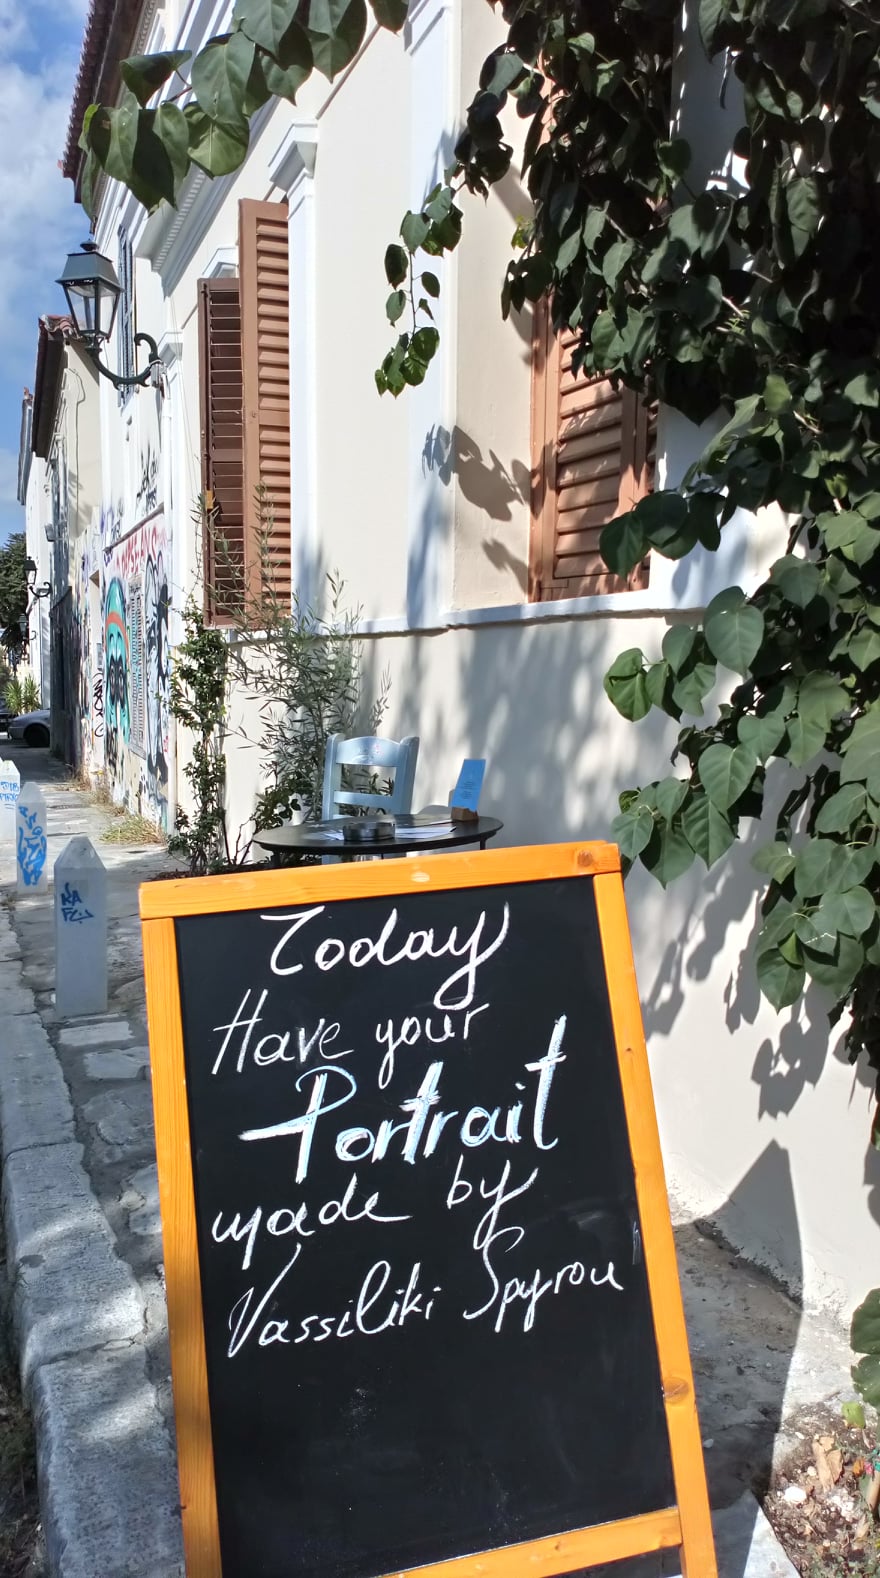 Today
Have your
Portrait
made by
Vassiliki Spyrou